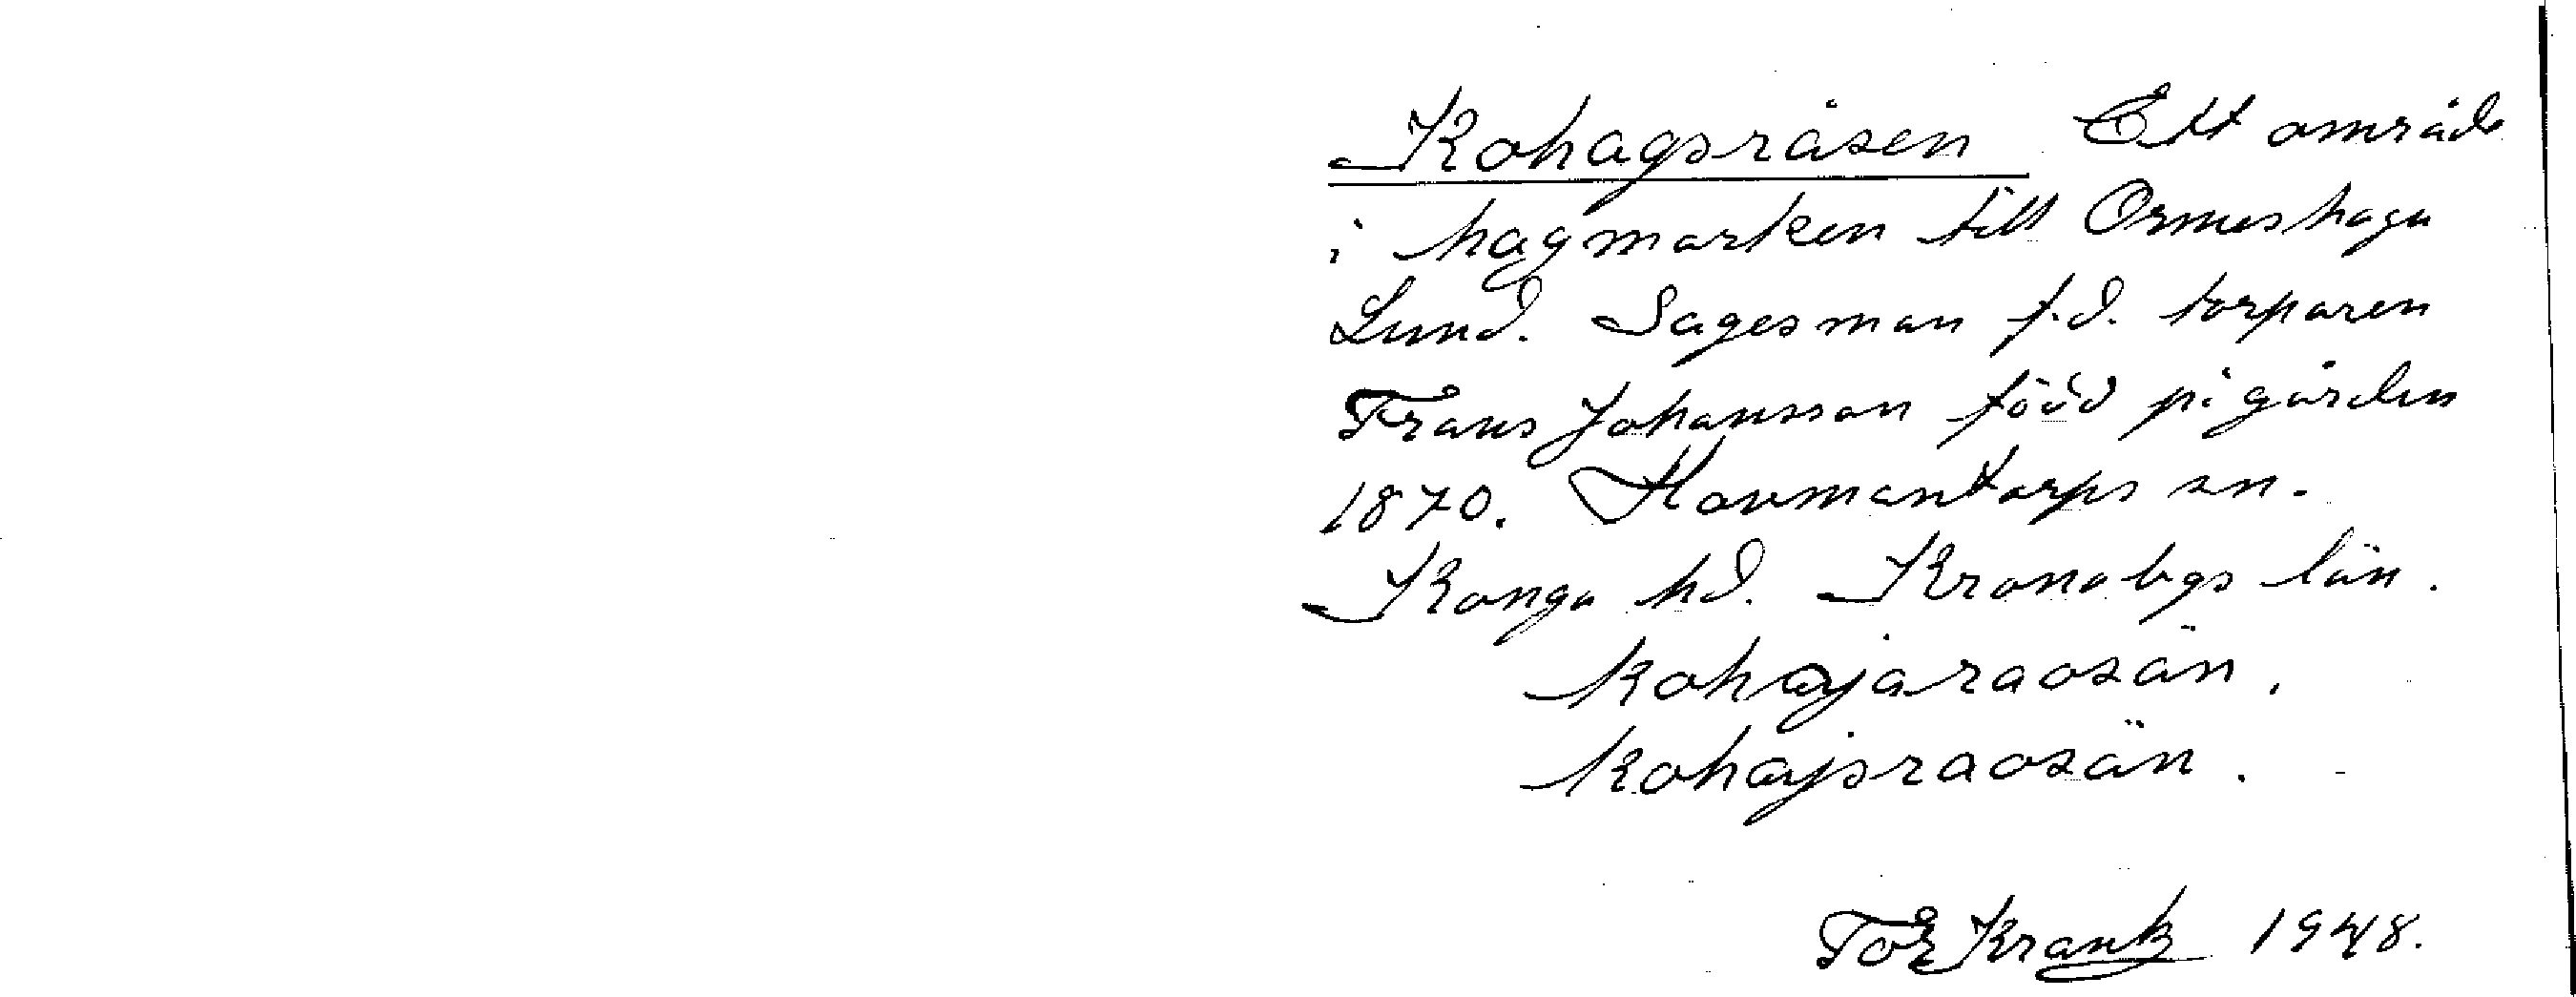 Kohagsråsen Ett område
i hagmarken till Ormeshaga
Lund. Sagesman f.d. torparen
Frans Johansson född på gården
1870. Hovmantorps sn.
Konga hd. Kronobgs län.
kohajaraosän.
kohajsraosän.
Tor Krank 1948.